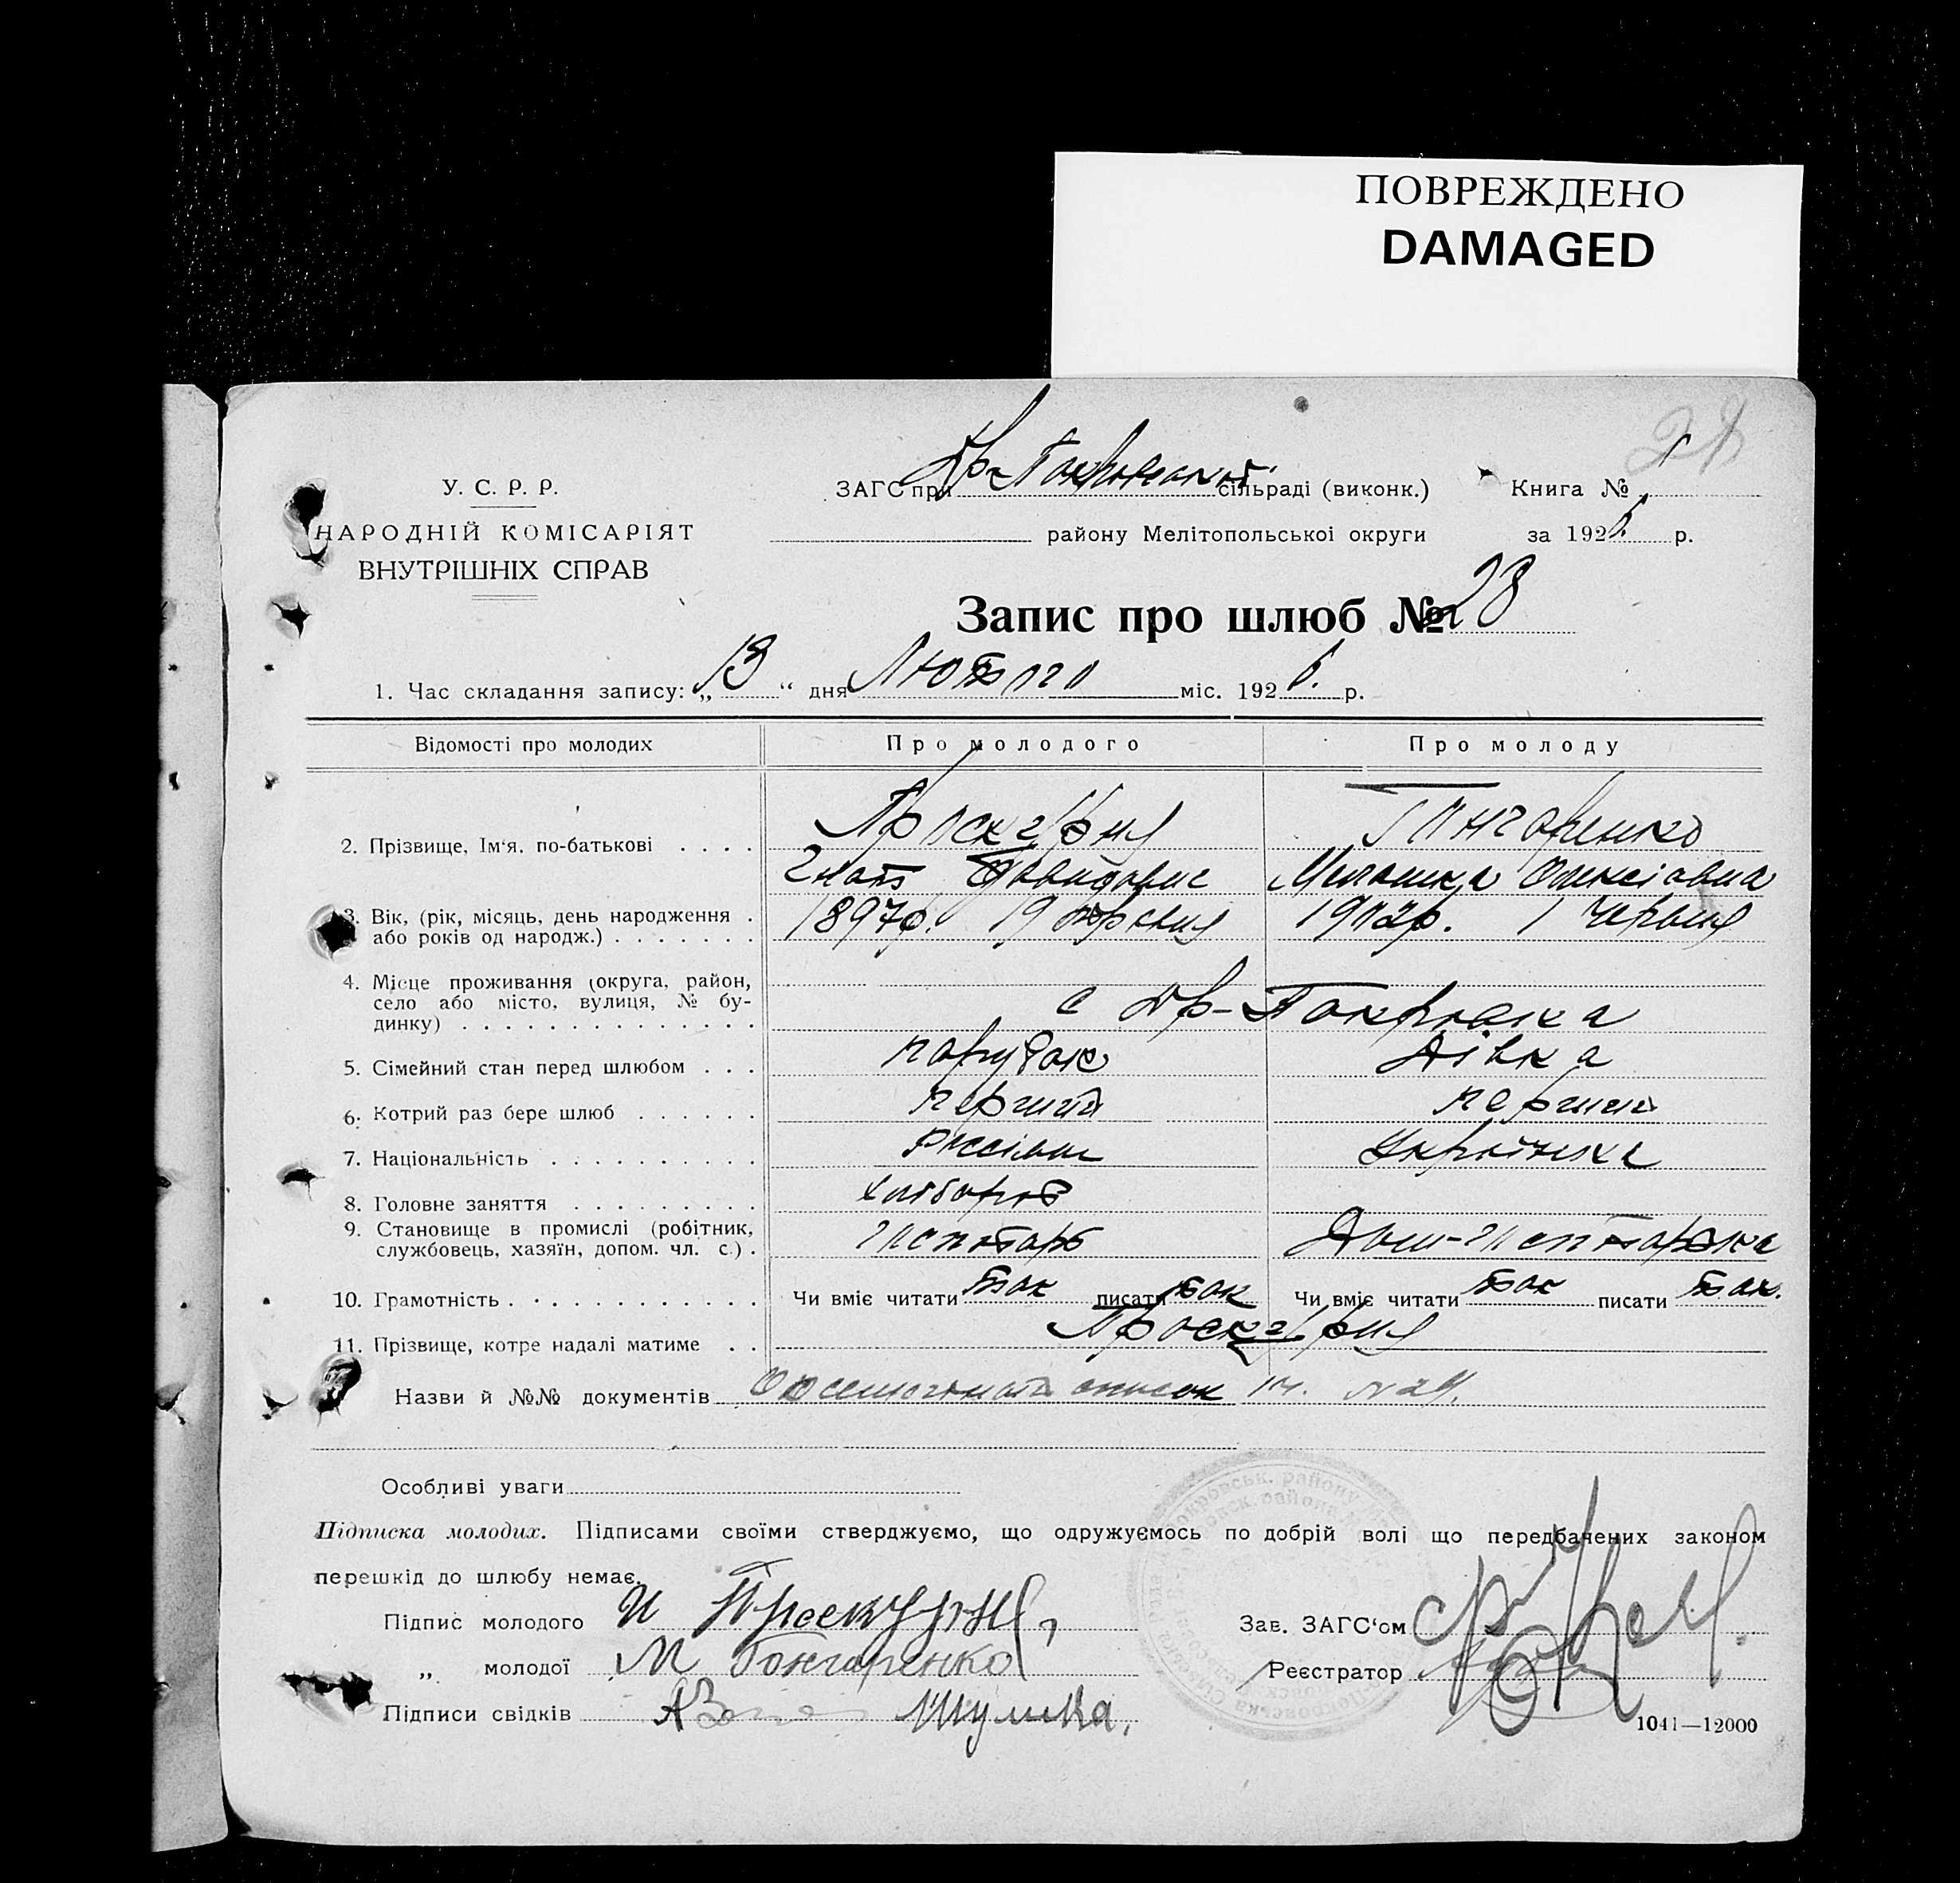 ПОВРЕЖДЕНО
DAMAGED
28
У. С. Р. Р.
НАРОДНІЙ КОМІСАРІЯТ
ВНУТРІШНІХ СПРАВ
ЗАГС при Др-Покровській сільраді (виконк.)
Книга № 1
району Мелітопольської округи
за 1926 р.
Запис про шлюб № 28
1. Час складання запису: „13“ дня Лютого міс. 1926. р.
Відомості про молодих Про молодого Про молоду
2. Прізвище, Ім'я, по-батькові . . . . Проскурня Гончаренко
Гнат Давидович Милашка Олексіовна
3. Вік, (рік, місяць, день народження . 1897р. 19 1902р. 1 Червня
або років од народж.) . . . . . . .
4. Місце проживання (округа, район,
село або місто, вулиця, № бу-
динку) . . . . . . . . . . . . . . с Др-Покровка
5. Сімейний стан перед шлюбом . . . парубок дівка
6. Котрий раз бере шлюб . . . . . . перший перший
7. Національність . . . . . . . . . . Українка
8. Головне заняття . . . . . . . . . хлібороб
9. Становище в промислі (робітник,
службовець, хазяїн, допом. чл. с.) .
10. Грамотність . . . . . . . . . . . . Чи вміє читати так писати так Чи вміє читати так писати так.
11. Прізвище, котре надалі матиме . . Проскурня
Назви й №№ документів список
Особливі уваги
Підписка молодих. Підписами своїми стверджуємо, що одружуємось по добрій волі що передбачених законом
перешкід до шлюбу немає.
Підпис молодого И Проскурня
„ молодої М Гончаренко
Підписи свідків Шулика.
Зав. ЗАГС'ом
Реєстратор
1041—12000